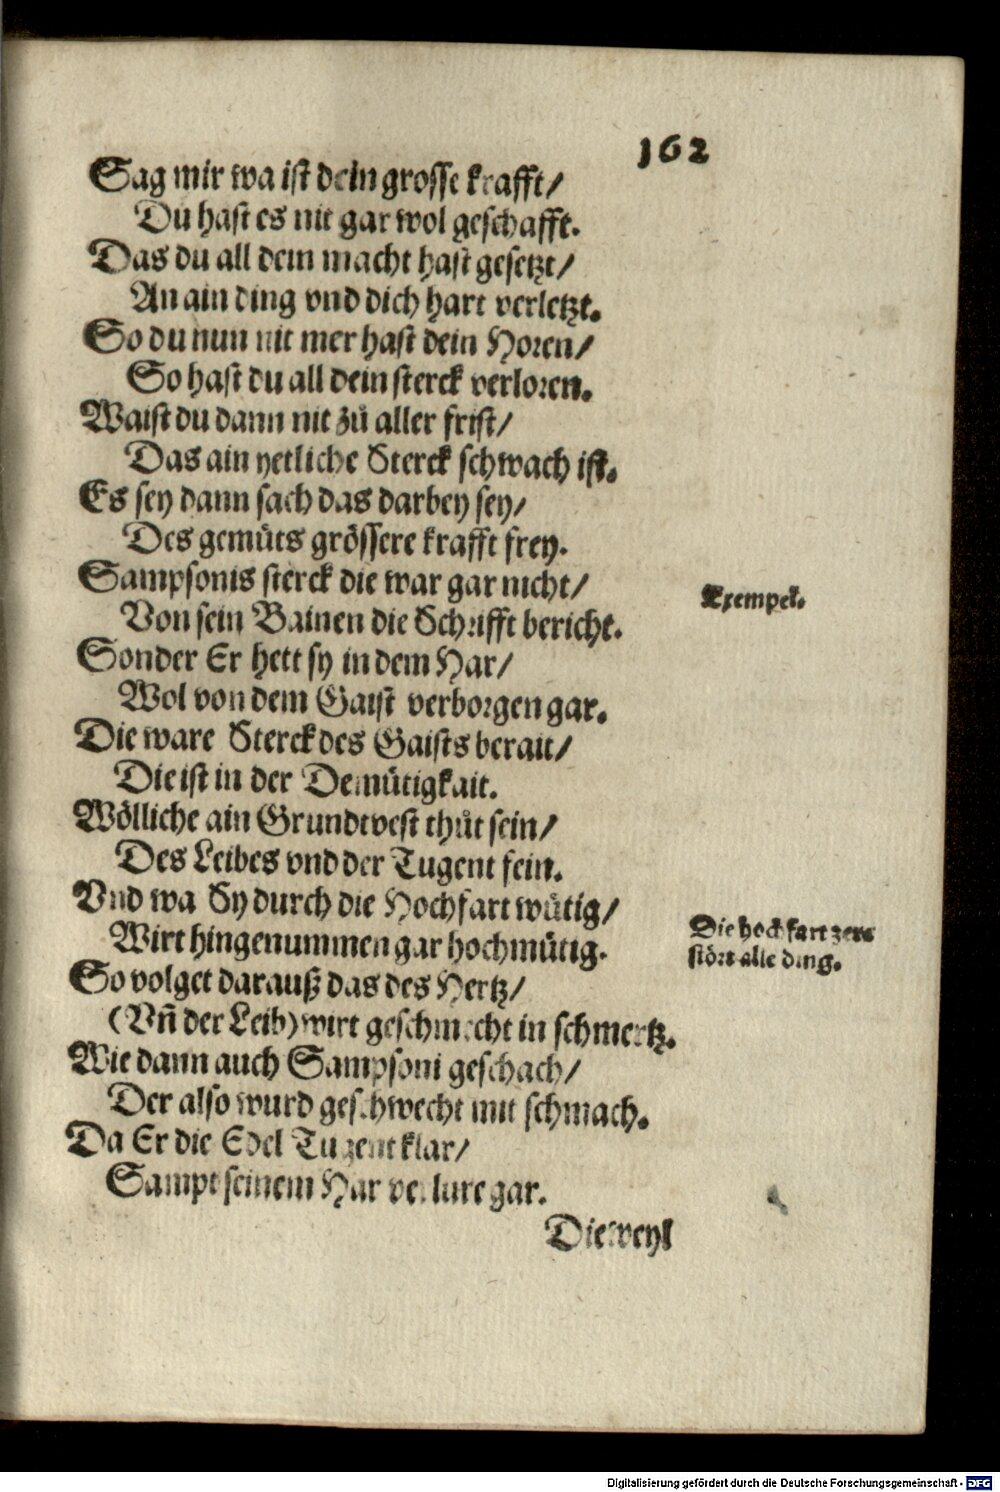 162
Sag mir wa ist dein grosse krafft/
Du hast es nit gar wol geschafft.
Das du all dein macht hast gesetzt/
An ain ding vnd dich hart verletzt.
So du nun nit mer hast dein Horen/
So hast du all dein sterck verloren.
Waist du dann nit zů aller frist/
Das ain yetliche Sterck schwach ist.
Es sey dann sach das darbey sey/
Des gemüts grössere krafft frey.
Sampsonis sterck die war gar nicht/
Exempel.
Von sein Bainen die Schrifft bericht.
Sonder Er hett sy in dem Har/
Wol von dem Gaist verborgen gar.
Die ware Sterck des Gaists berait/
Die ist in der Demütigkait.
Wölliche ain Grundtvest thůt sein/
Des Leibes vnd der Tugent fein.
Vnd wa Sy durch die Hochfart wütig/
Wirt hingenummen gar hochmütig.
Die hochfart zers
stört alle ding.
So volget darauß das des Hertz/
(Vñ der Leib) wirt geschmecht in schmertz.
Wie dann auch Sampsoni geschach/
Der also wurd geschwecht mit schmach.
Da Er die Edel Tugent klar/
Sampt seinem Har verlure gar.
Dieweyl
Digitalisierung gefördert durch die Deutsche Forschungsgemeinschaft - DFG